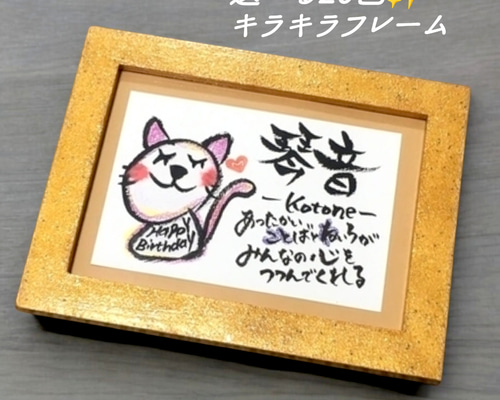 キラキラフレーム
琴音
-Kotone-
あったかい
ことばやねいろが
みんなの心を
つつんでくれる
Happy
Birthday